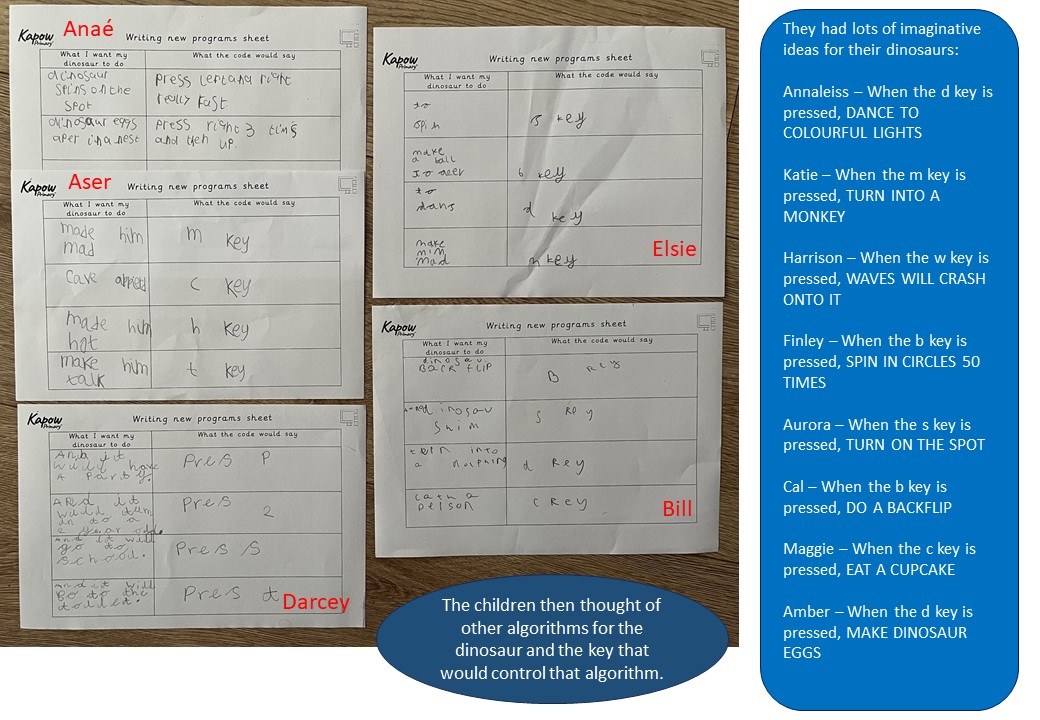 Anaé
Kapow
Primary
Writing new programs sheet
What I want my
dinosaur to do
What the code would say
dinosaur
spins on the
spot
press leftand right
really fast
dinosaur eggs
aper in a nest
press right 3 tims
and then up.
Aser
Kapow
Primary
Writing new programs sheet
What I want my
dinosaur to do
What the code would say
made him
mad
m key
Cave
c key
made him
hot
h key
make him
talk
t key
Kapow
Primary
Writing new programs sheet
What I want my
dinosaur to do
What the code would say
And it
will have
a party.
Pres P
And it
will turn
in to a
2 year old.
Pres 2
And it will
go to
school.
Press S
And it will
go to the
toilet.
Press t
Darcey
Kapow
Primary
Writing new programs sheet
What I want my
dinosaur to do
What the code would say
to
spin
s key
make
a ball
b key
to
dans
d key
make
him
mad
key
Elsie
Kapow
Primary
Writing new programs sheet
What I want my
dinosaur to do
What the code would say
BacK fLIP
B
swim
s key
into
a
d key
a
person
c key
Bill
The children then thought of
other algorithms for the
dinosaur and the key that
would control that algorithm.
They had lots of imaginative
ideas for their dinosaurs:
Annaleiss – When the d key is
pressed, DANCE TO
COLOURFUL LIGHTS
Katie – When the m key is
pressed, TURN INTO A
MONKEY
Harrison – When the w key is
pressed, WAVES WILL CRASH
ONTO IT
Finley – When the b key is
pressed, SPIN IN CIRCLES 50
TIMES
Aurora – When the s key is
pressed, TURN ON THE SPOT
Cal – When the b key is
pressed, DO A BACKFLIP
Maggie – When the c key is
pressed, EAT A CUPCAKE
Amber – When the d key is
pressed, MAKE DINOSAUR
EGGS